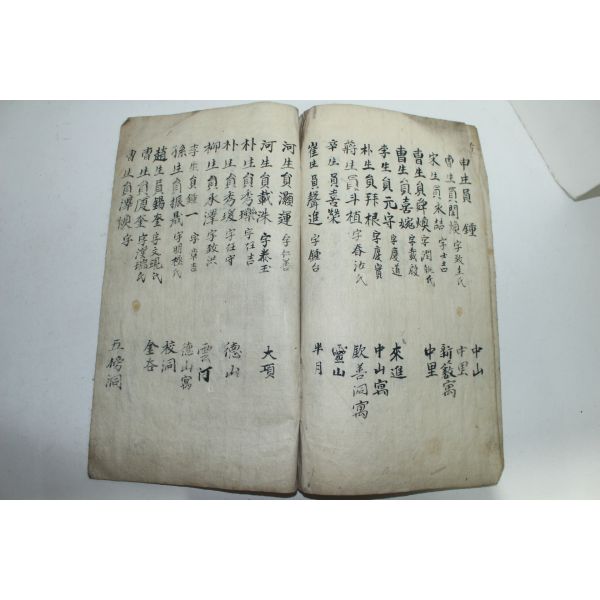 申生員 鍾 中山
曺生員閏煥 字致圭氏 中里
宋生員永喆 字士吉 新藪寓
曺生員舜煥 字潤執氏 中里
曺生員喜琬 字載殷
李生員元守 字慶道 來進
朴生員拜根 字慶實 中山寓
蔣生員斗植 字春汝氏 歐善洞寓
辛生員喜榮 靈山
崔生員聲進 字鍾台 半月
河生員灝運 字仁善
河生員載洙 字泰玉 大項
朴生員秀瓅 字任吉
朴生員秀瑗 字任守 德山
柳生員永澤 字致洪
李生員鍾一 字章吉 雲河
孫生員振鼎 字明極氏 德山寓
趙生員錫奎 字文現氏 校洞
曺生員夏奎 字潑瑞氏 金谷
曺生員澤煥 字 五榜洞